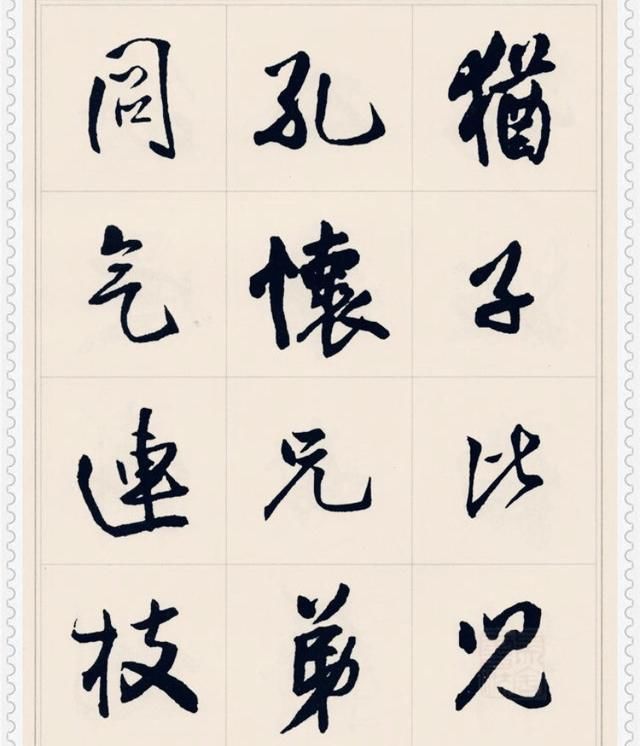 猶子比兒
孔懷兄弟
同气連枝